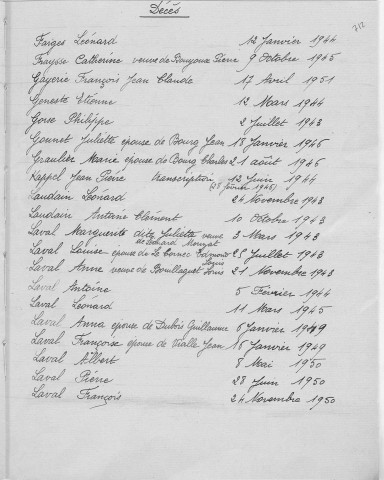 Décès
712
Farges Léonard 12 Janvier 1944
Fraysse Catherine veuve de Bouyoux Pierre 9 Octobre 1945
Gayerie François Jean Claude 17 Avril 1951
Geneste Etienne 12 Mars 1944
Gorse Philippe 2 Juillet 1943
Gounet Juliette epouse de Bourg Jean 18 Janvier 1945
Graulier Marie epouse de Bourg Charles 21 août 1945
Kappel Jean Pierre transcription 12 Juin 1944
(28 février 1946)
Laudain Léonard 24 Novembre 1943
Laudain Antoine Clément 10 Octobre 1943
Laval Marguerite dite Juliette veuve 3 Mars 1943
de Léonard Mouzat
Laval Louise épouse de Le Cornec Edmond 25 Juillet 1943
Louis
Laval Anne veuve de Bouillaguet Louis 21 Novembre 1943
Laval Antoine 5 Février 1944
Laval Léonard 11 Mars 1945
Laval Anna epouse de Dubois Guillaume 6 Janvier 1949
Laval Françoise epouse de Vialle Jean 16 Janvier 1949
Laval Albert 8 Mai 1950
Laval Pierre 28 Juin 1950
Laval François 24 Novembre 1950